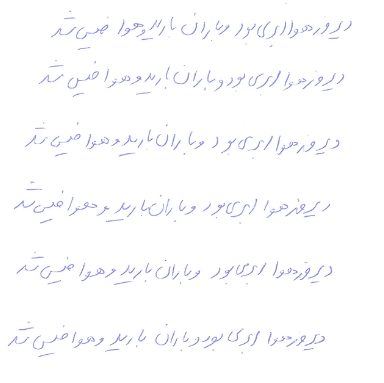 دیروز هوا ابری بود و باران بارید و هوا خیس شد
دیروز هوا ابری بود و باران بارید و هوا خیس شد
دیروز هوا ابری بود و باران بارید و هوا خیس شد
دیروز هوا ابری بود و باران بارید و هوا خیس شد
دیروز هوا ابری بود و باران بارید و هوا خیس شد
دیروز هوا ابری بود و باران بارید و هوا خیس شد